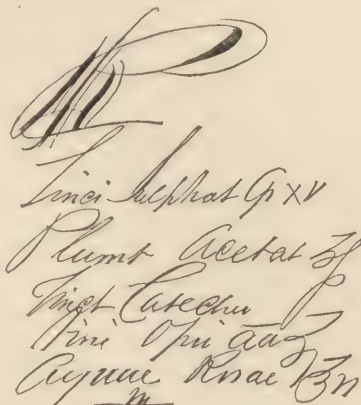 ℞
Zinci Sulphat Gr XV
Plumb Acetat ʒj
Tinct Catechu
Vini Opii aa ʒ
Aquae Rosae ℥
M